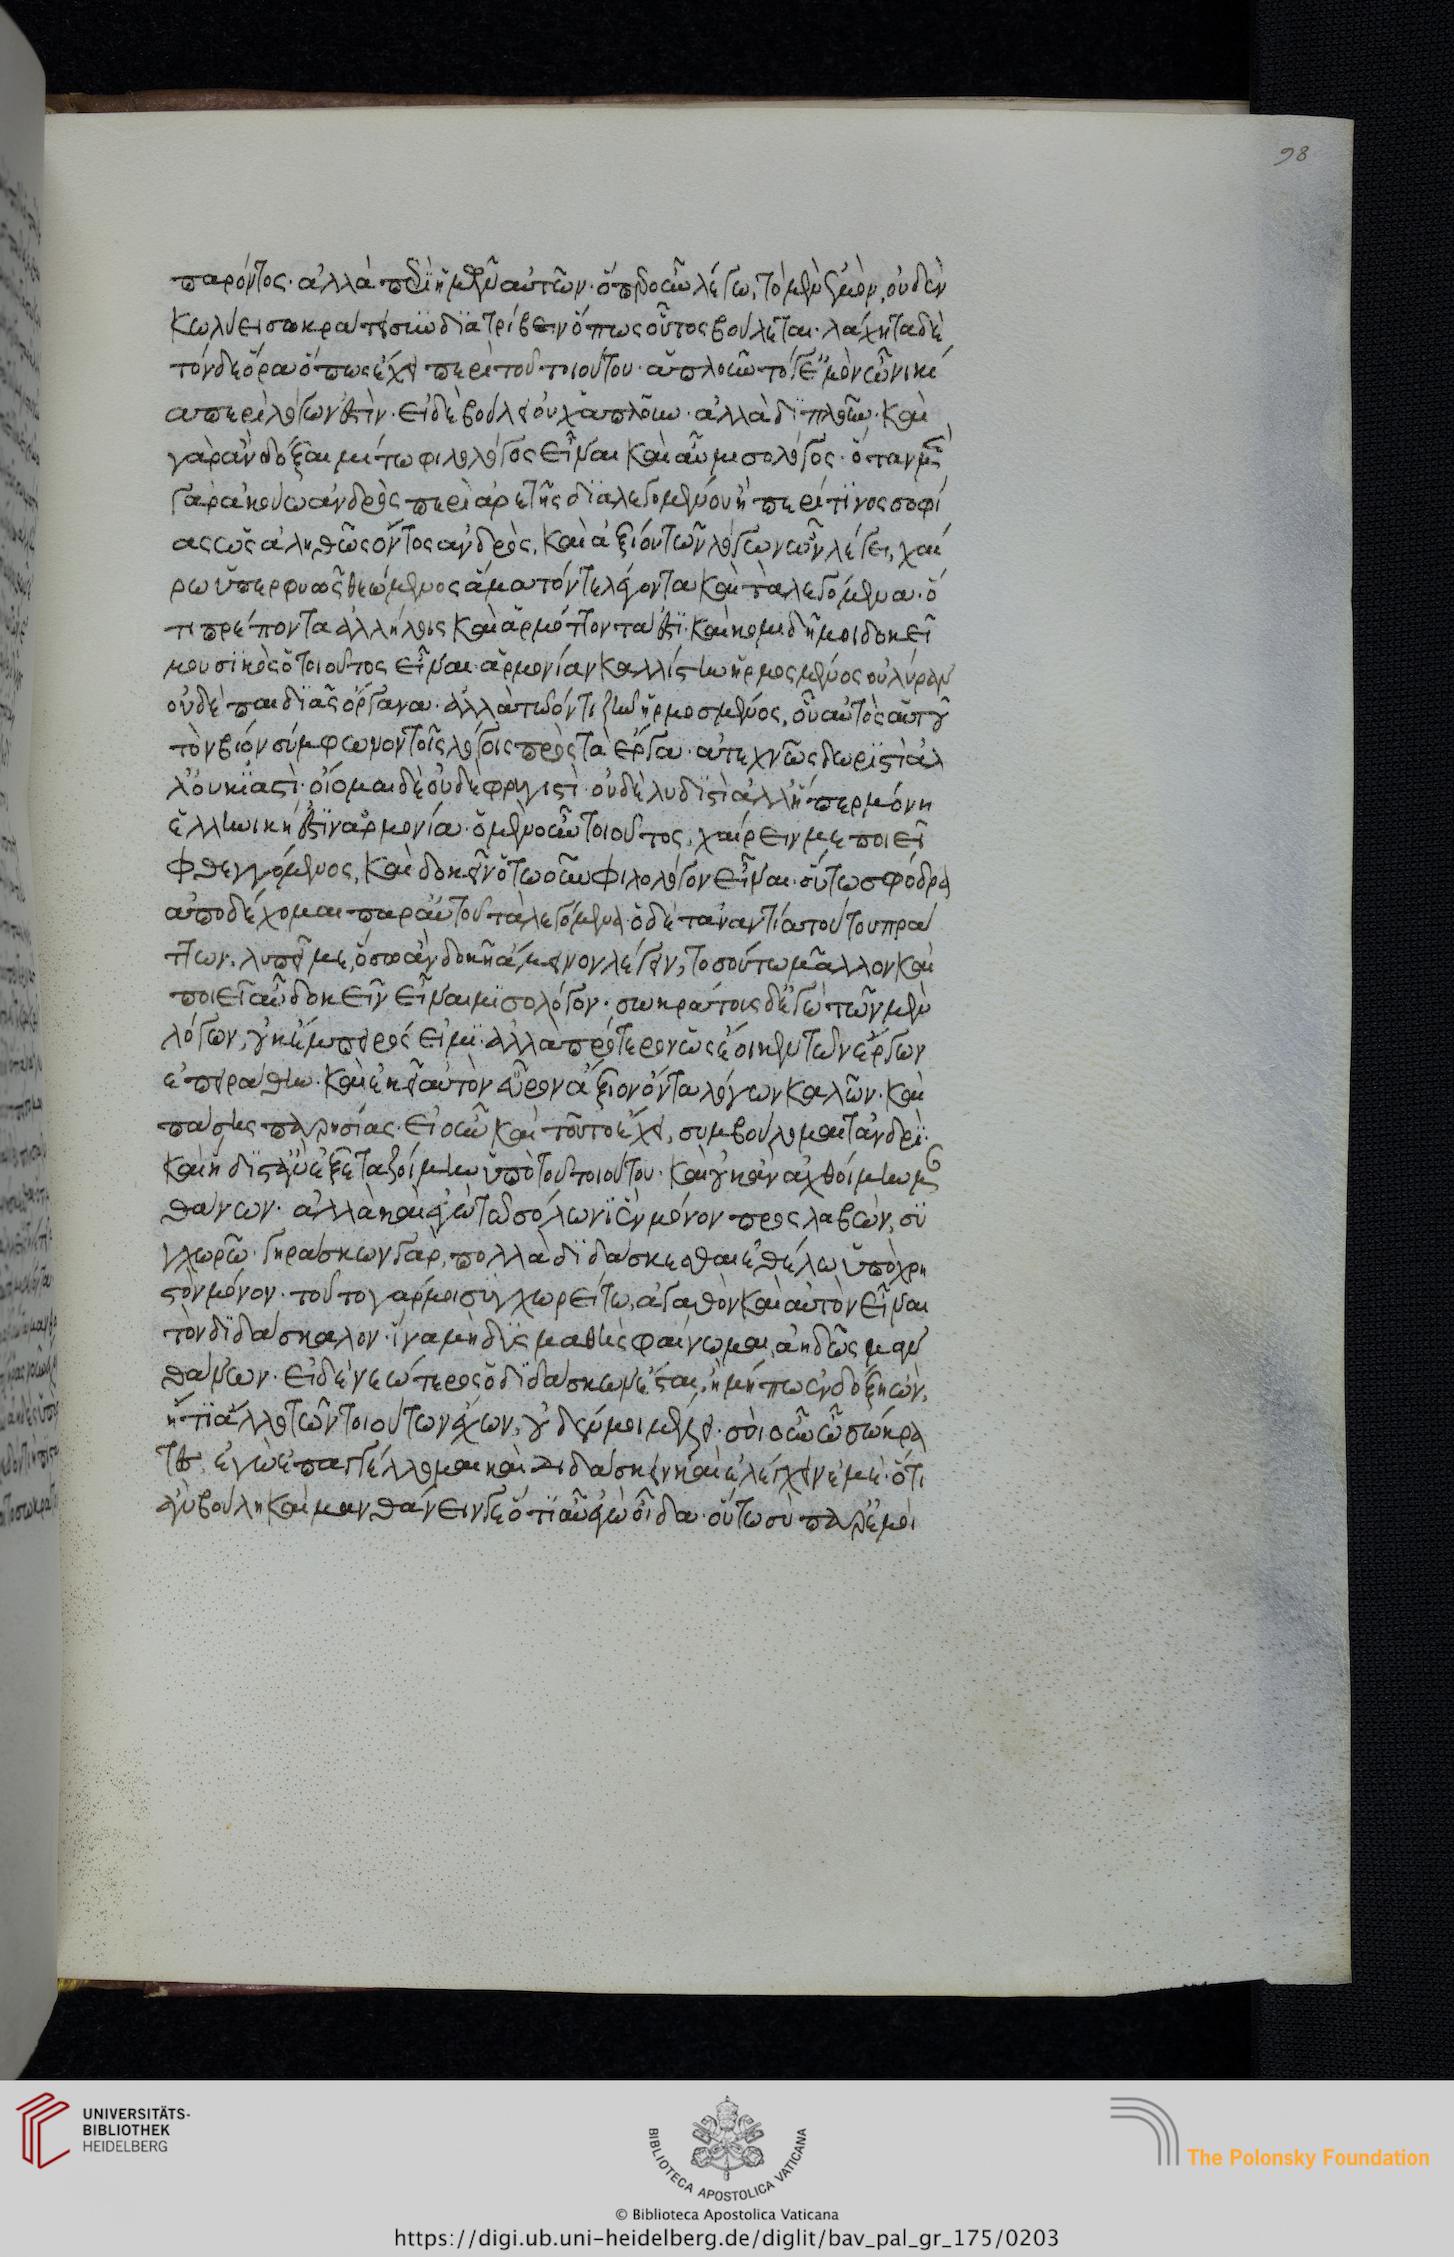 98
παρόντος· ἀλλὰ περὶ ἡμῶν αὐτῶν· ὅπερ οὖν λέγω, τὸ μὲν ἐμὸν, οὐδὲν
κωλύει σωκράτει συνδιατρίβειν ὅπως οὗτος βούλεται· λάχητα δὲ
τόνδε ὅρα ὅπως ἔχει περὶ τοῦ τοιούτου· ἁπλοῦν τό γ' ἐμὸν ὦ νικί
α περὶ λόγων ἐστὶν· εἰ δὲ βούλει οὐχ ἁπλοῦν· ἀλλὰ διπλοῦν· καὶ
γὰρ ἂν δόξαιμί τω φιλόλογος εἶναι καὶ αὖ μισολόγος· ὅταν μὲν
γὰρ ἀκούω ἀνδρὸς περὶ ἀρετῆς διαλεγομένου ἢ περί τινος σοφί
ας ὡς ἀληθῶς ὄντος ἀνδρὸς, καὶ ἀξίου τῶν λόγων ὧν λέγει, χαί
ρω ὑπερφυῶς θεώμενος ἅμα τόν τε λέγοντα καὶ τὰ λεγόμενα· ὅ
τι πρέποντα ἀλλήλοις καὶ ἁρμόττοντα ἐστὶ· καὶ κομιδῇ μοι δοκεῖ
μουσικὸς ὁ τοιοῦτος εἶναι· ἁρμονίαν καλλίστην ἡρμοσμένος οὐ λύραν
οὐδὲ παιδιᾶς ὄργανα· ἀλλὰ τῶόντι ζῆν ἡρμοσμένος, οὗ αὐτὸς αὑτοῦ
τὸν βίον σύμφωνον τοῖς λόγοις πρὸς τὰ ἔργα· ἀτεχνῶς δωριστὶ ἀλ
λ' οὐκ ἰαστὶ· οἴομαι δὲ οὐδὲ φρυγιστὶ· οὐδὲ λυδιστὶ ἀλλ' ἥπερ μόνη
ἑλληνική ἐστιν ἁρμονία· ὁ μὲν οὖν τοιοῦτος, χαίρειν με ποιεῖ
φθεγγόμενος, καὶ δοκεῖν ὁτωοῦν φιλολόγον εἶναι· οὕτω σφόδρα
ἀποδέχομαι παρ' αὐτοῦ τὰ λεγόμενα· ὁ δὲ τἀναντία τούτου πράτ
των, λυπεῖ με, ὅσω ἂν δοκῇ ἄμεινον λέγειν, τοσούτω μᾶλλον καὶ
ποιεῖ αὖ δοκεῖν εἶναι μισολόγον· σωκράτους δ' ἐγὼ τῶν μὲν
λόγων, οὐκ ἔμπειρός εἰμι· ἀλλὰ πρότερον ὡς ἔοικεν τῶν ἔργων
ἐπειράθην· καὶ ἐκεῖ αὐτὸν εὗρον ἄξιον ὄντα λόγων καλῶν· καὶ
πάσης παρρησίας· εἰ οὖν καὶ τοῦτο ἔχει, συμβούλομαι τἀνδρὶ·
καὶ ἥδιστ' ἂν ἐξεταζοίμην ὑπὸ τοῦ τοιούτου· καὶ οὐκ ἂν ἀχθοίμην μαν
θάνων· ἀλλὰ καὶ ἐγὼ τῶ σόλωνι ἓν μόνον προσλαβὼν, συ
γχωρῶ· γηράσκων γὰρ, πολλὰ διδάσκεσθαι ἐθέλω ὑπὸ χρη
στῶν μόνον· τοῦτο γάρ μοι συγχωρείτω, ἀγαθὸν καὶ αὐτὸν εἶναι
τὸν διδάσκαλον· ἵνα μὴ δὶς μαθὴς φαίνωμαι, ἀηδῶς μαν
θάνων· εἰ δὲ νεώτερος ὁ διδάσκων ἔσται, ἢ μήπω ἐν δόξη ὢν,
ἤ τι ἄλλο τῶν τοιούτων ἔχων, οὐδέν μοι μέλει· σοὶ οὖν ὦ σώκρα
τες, ἐγὼ ἐπαγγέλλομαι καὶ διδάσκειν καὶ ἐλέγχειν ἐμὲ· ὅτι
ἂν βούλη καὶ μανθάνειν γε ὅτι αὖ ἐγὼ οἶδα· οὕτω σὺ παρ' ἐμοὶ
UNIVERSITÄTS-
BIBLIOTHEK
HEIDELBERG
BIBLIOTECA APOSTOLICA VATICANA
The Polonsky Foundation
© Biblioteca Apostolica Vaticana
https://digi.ub.uni-heidelberg.de/diglit/bav_pal_gr_175/0203